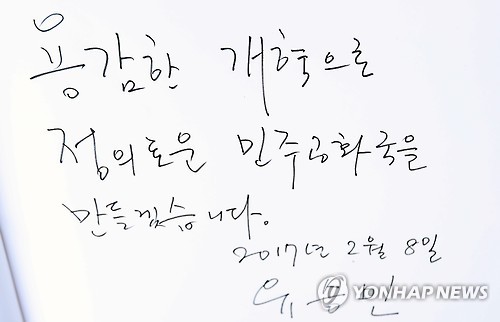 용감한 개혁으로
정의로운 민주공화국을
만들겠습니다.
2017년 2월 8일
유승민
YONHAP NEWS